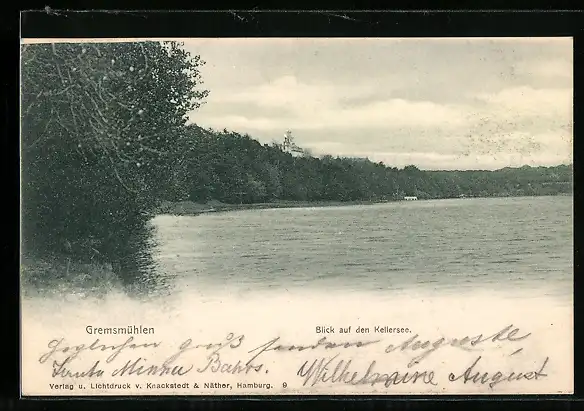 Gremsmühlen
Blick auf den Kellersee.
Herzlichen gruß senden Auguste
Tante Minna Bahrs. Wilhelmine August
Verlag u. Lichtdruck v. Knackstedt & Näther, Hamburg. 9